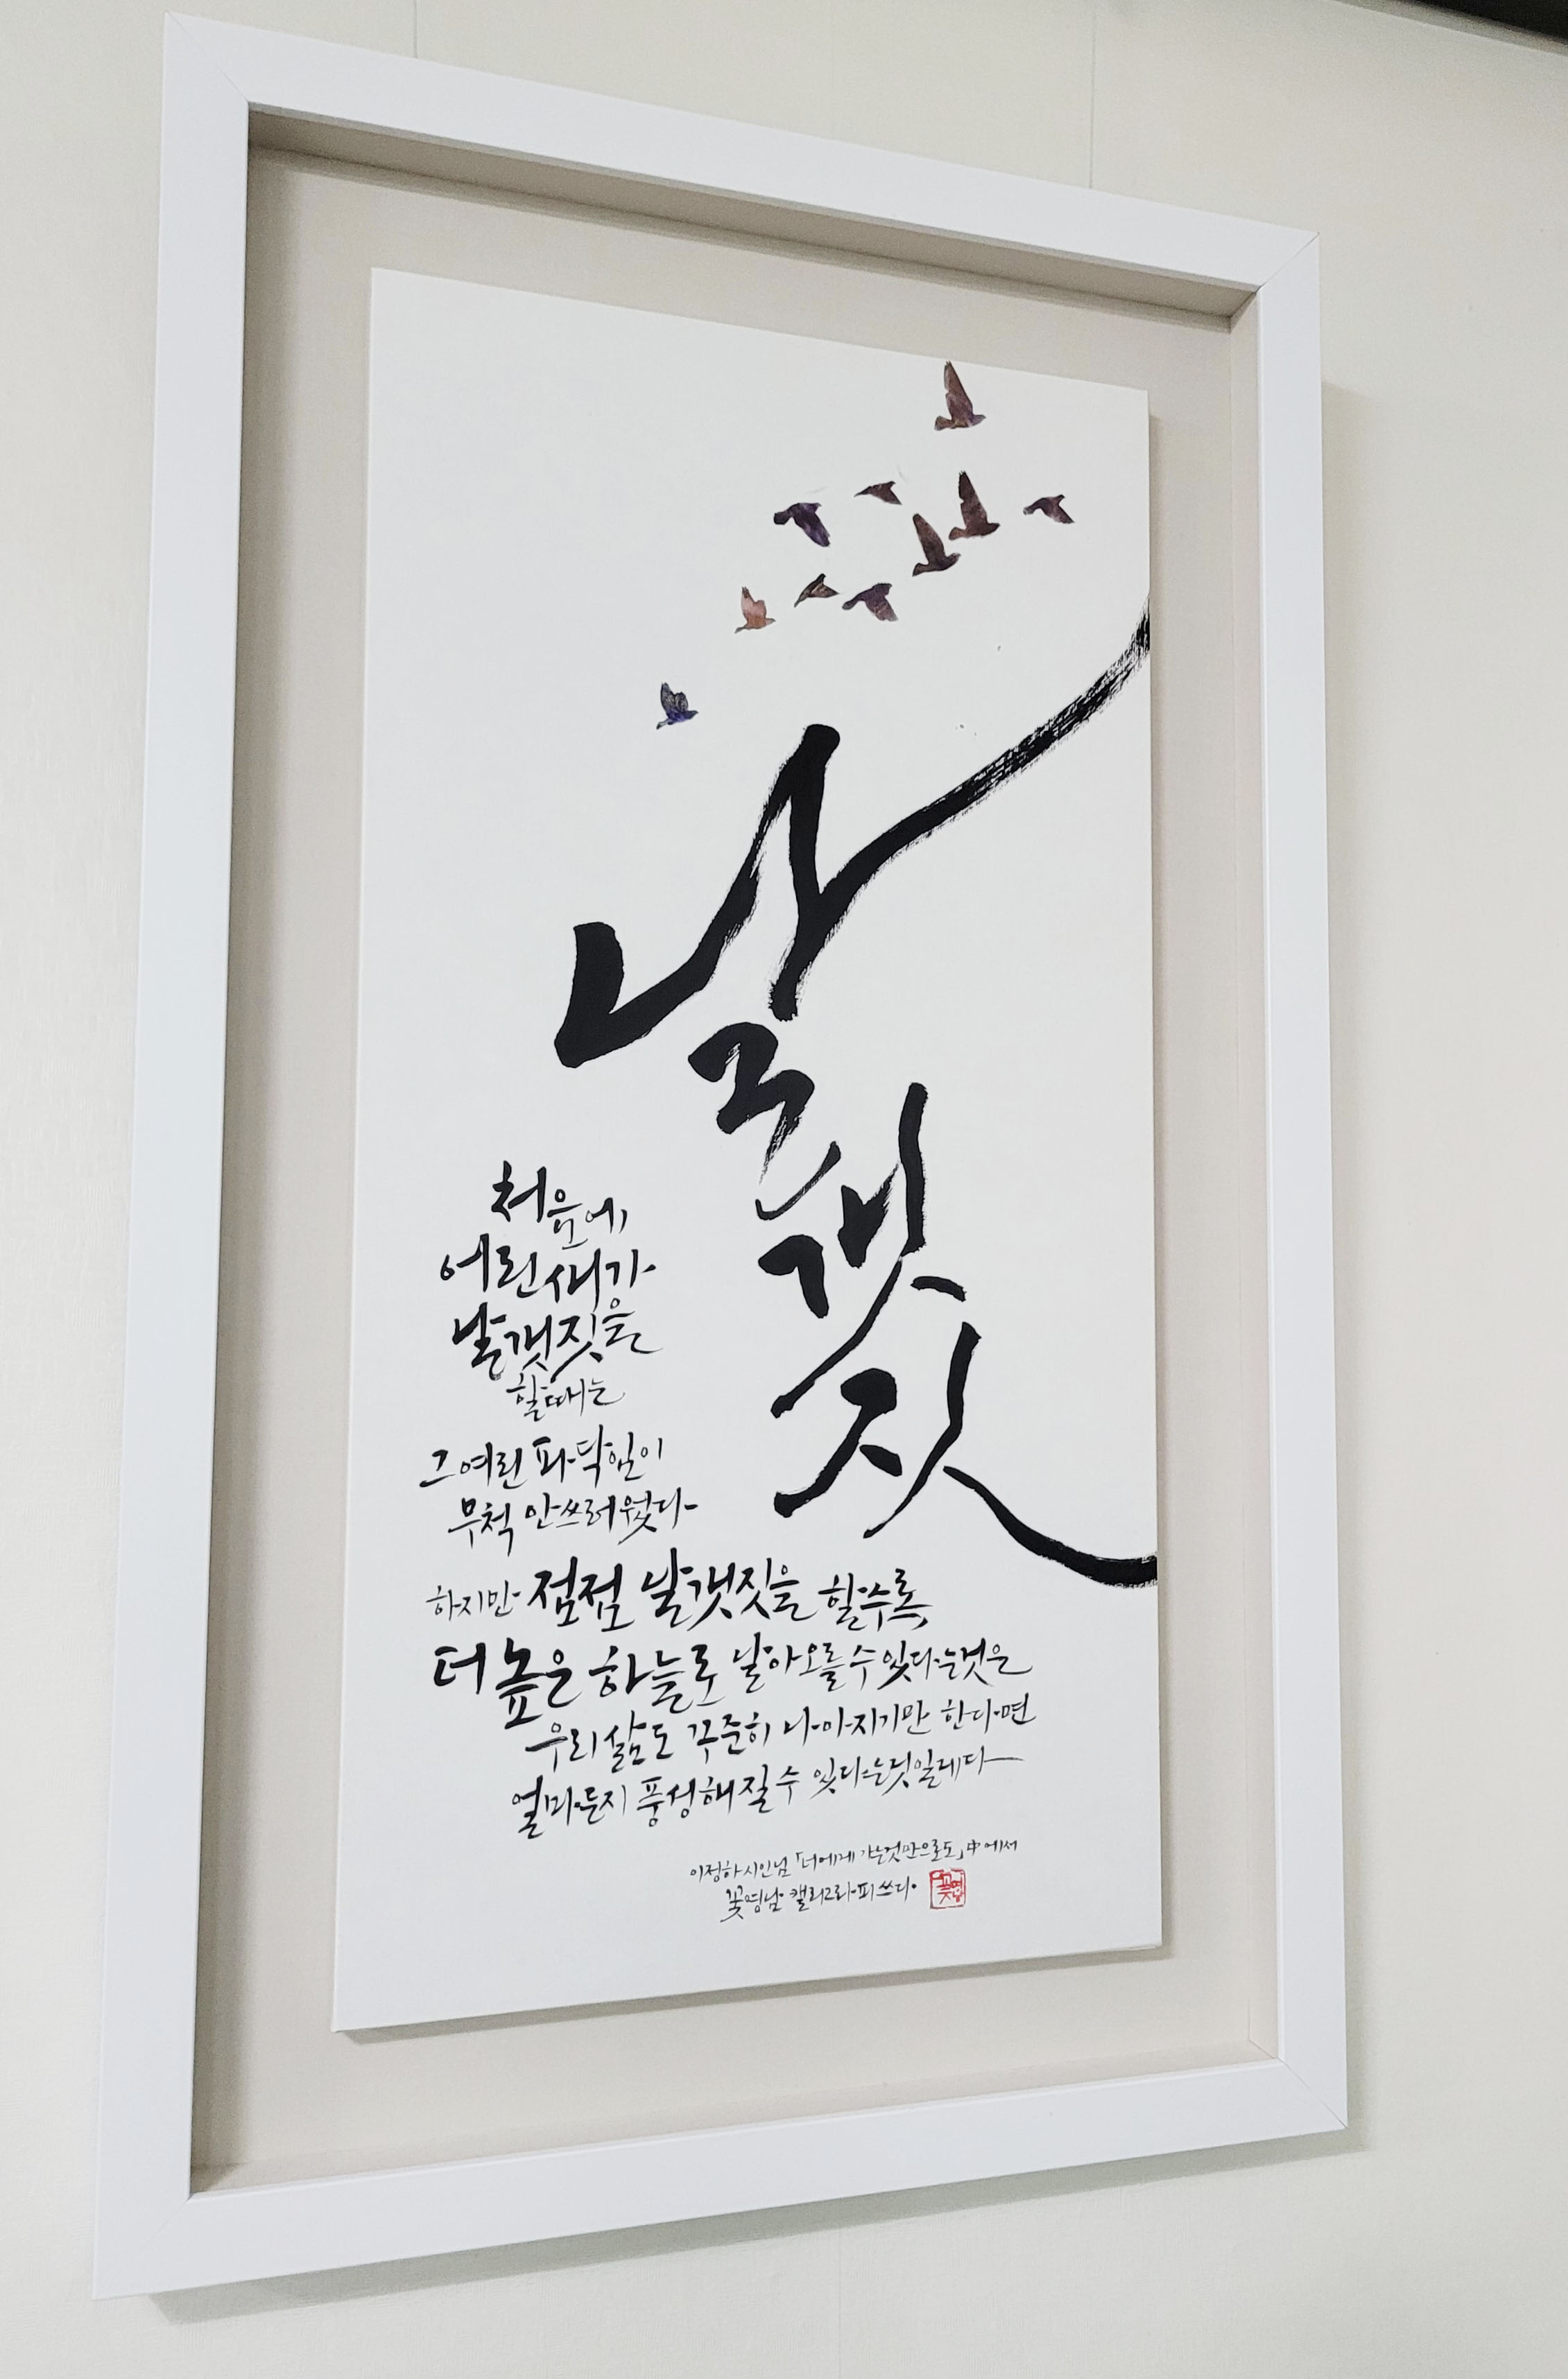 날갯짓
처음에
어린새가
날갯짓을
할때는
그여린 파닥임이
무척 안쓰러웠다
하지만 점점 날갯짓을 할수록
더 높은 하늘로 날아오를수있다는것은
우리삶도 꾸준히 나아지기만 한다면
얼마든지 풍성해질수 있다는것일레다
이정하시인님 「너에게 가는것만으로도」 中에서
꽃영남 캘리그라피 쓰다